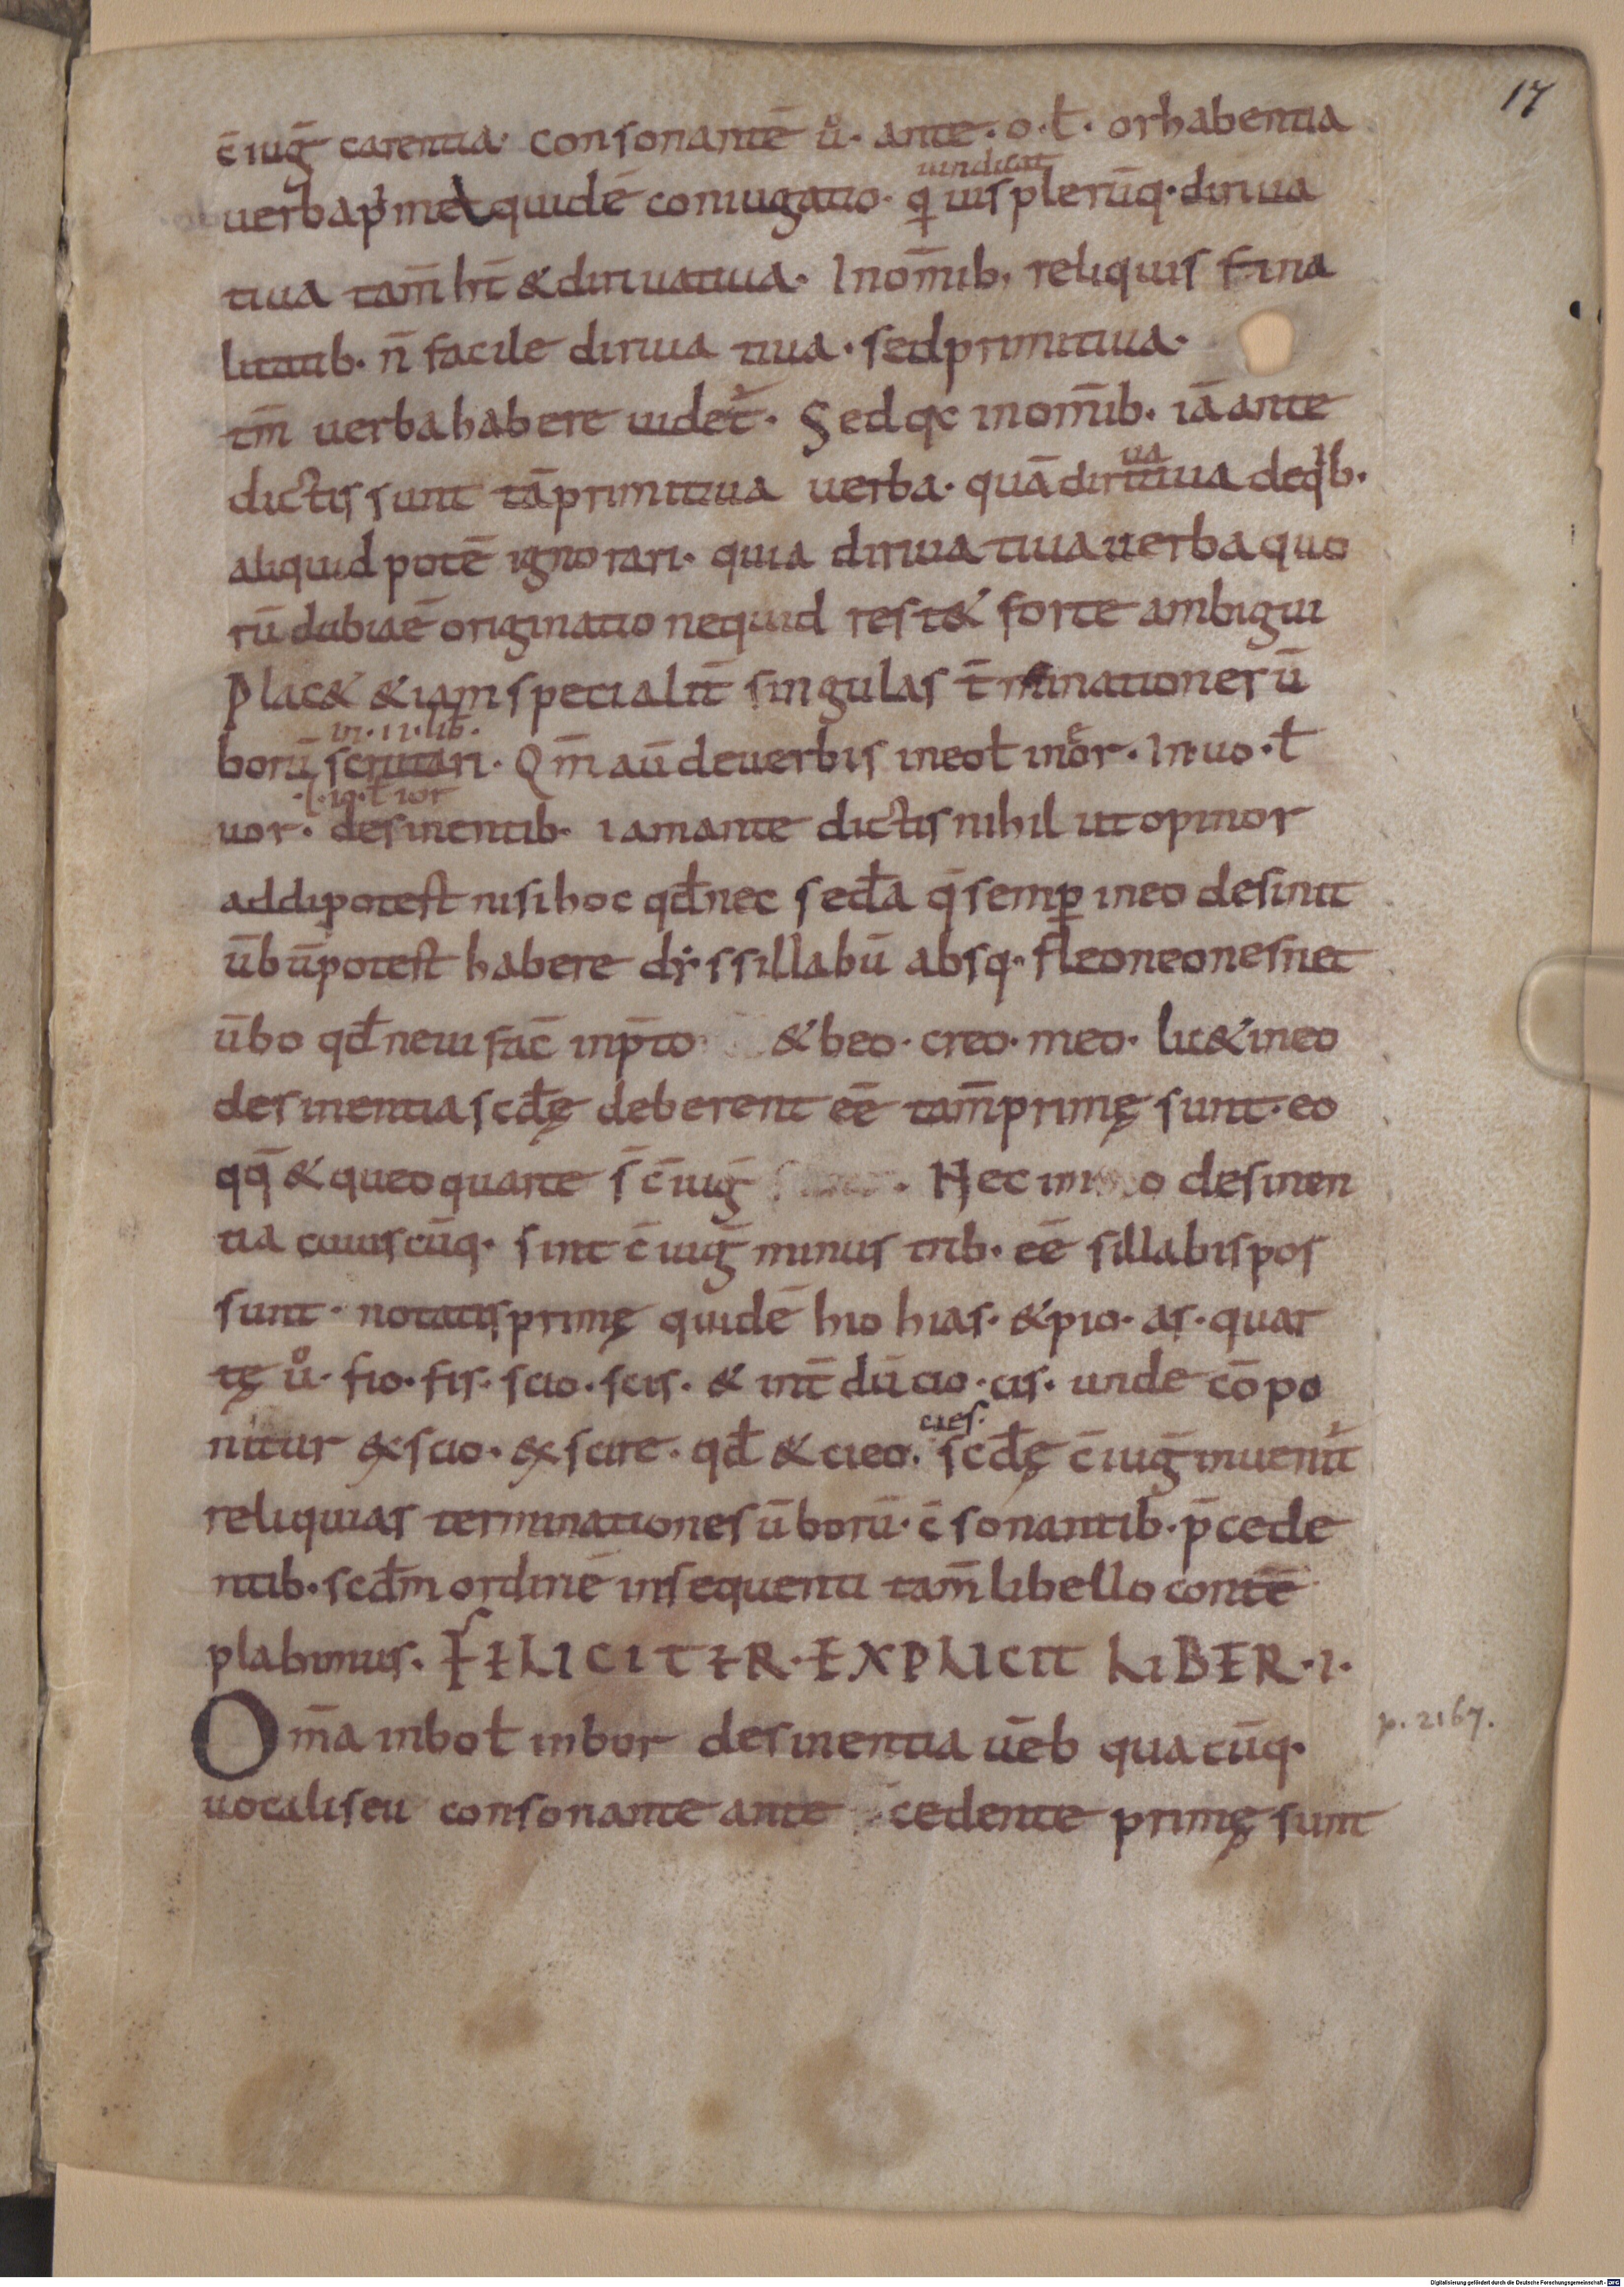 17
c̄iuḡ carentia· consonantē ů· ante· o· ł· or habentia
uindicat
uerba p̍me quidē coniugatio· q uis plerūq· diriua
tiua tam̄ hn̄t & diriuatiua· In om̄ib, reliquis fina
litatib· n̄ facile diriua tiua· sed primitiua·
tm̄ uerba habere uidet᷑· Sed qc in om̄ib· iā ante
ua
dictis sunt tā primitiua uerba· quā diriuiua deqb·
aliquid potē ignorari· quia diriua tiua uerba quo
rū dubiaē originatio nequid rest& forte ambigui
Plac& &iam specialit̄ singulas t̄minationes ū
in· 11· lib·
borū scrutari· Qm̄ aū de uerbis in eo ł in eor· In uo· ł
·ł· io· ł ior
uor· desinentib· iam ante dictis nihil ut opinor
addi potest nisi hoc qđ nec seđa q̄ semꝑ in eo desinit
ūbū potest habere dissillabū absq· fleo neo nes net
ūbo qđ neui fac̄ in p̄to & beo· creo· meo· lic& in eo
desinentia scđę deberent eē tam̄ primę sunt· eo
qq̄ & queo quarte s̄ c̄iuḡ · Nec in o desinen
tia cuiuscūq· sint c̄iuḡ minus trib· eē sillabis pos
sunt· notatis primę quidē hio hias· & pio· as· quar
tę ů· fio· fis· scio· scis· & int̄dū cio· cis· unde cōpo
cies·
nitur &scio· &scire· qđ & cieo· scđę c̄iuḡ inuenit᷑
reliquias terminationes ūborū· c̄sonantib· p̄cede
ntib· scđm ordinē in sequenti tam̄ libello contē
plabimus· FELICITER· EXPLICIT LIBER· 1·
Om̄a in bo ł in bor desinentia uēb qua cūq·
p. 2167.
uocali seu consonante ante cedente primę sunt
Digitalisierung gefördert durch die Deutsche Forschungsgemeinschaft - DFG